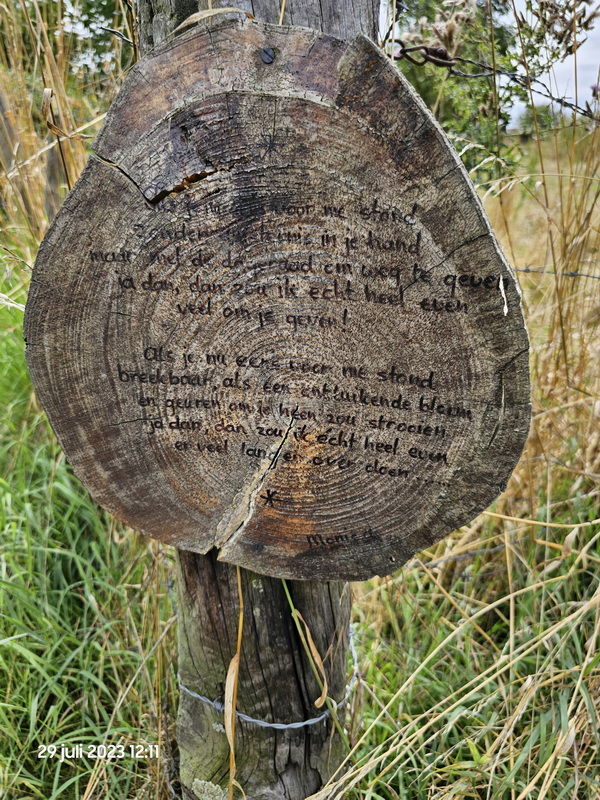 je voor me stond
Zonder in je hand
maar met de om weg te geven
ja dan, dan zou ik echt heel even
veel om je geven!
Als je nu eens voor me stond
breekbaar, als een ontluikende bloem
en geuren om je heen zou strooien
ja dan, dan zou ik echt heel even
er veel langer over doen .....
*
29 juli 2023 12:11